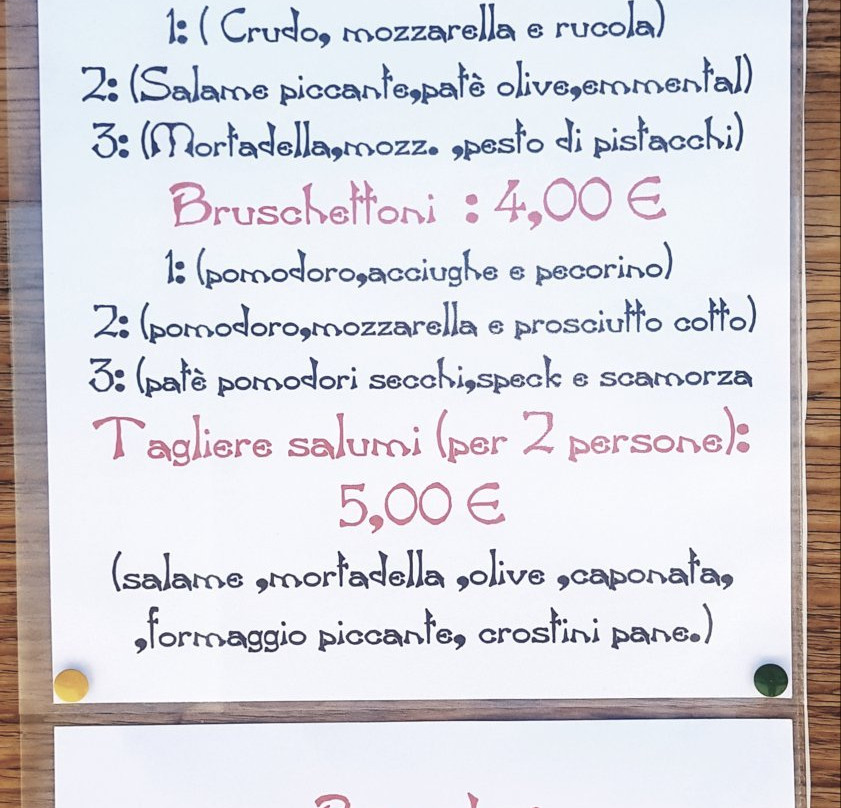 1: ( Crudo, mozzarella e rucola)
2: (Salame piccante,patè olive,emmental)
3: (Mortadella,mozz. ,pesto di pistacchi)
Bruschettoni : 4,00 €
1: (pomodoro,acciughe e pecorino)
2: (pomodoro,mozzarella e prosciutto cotto)
3: (patè pomodori secchi,speck e scamorza
Tagliere salumi (per 2 persone):
5,00 €
(salame ,mortadella ,olive ,caponata,
,formaggio piccante, crostini pane.)